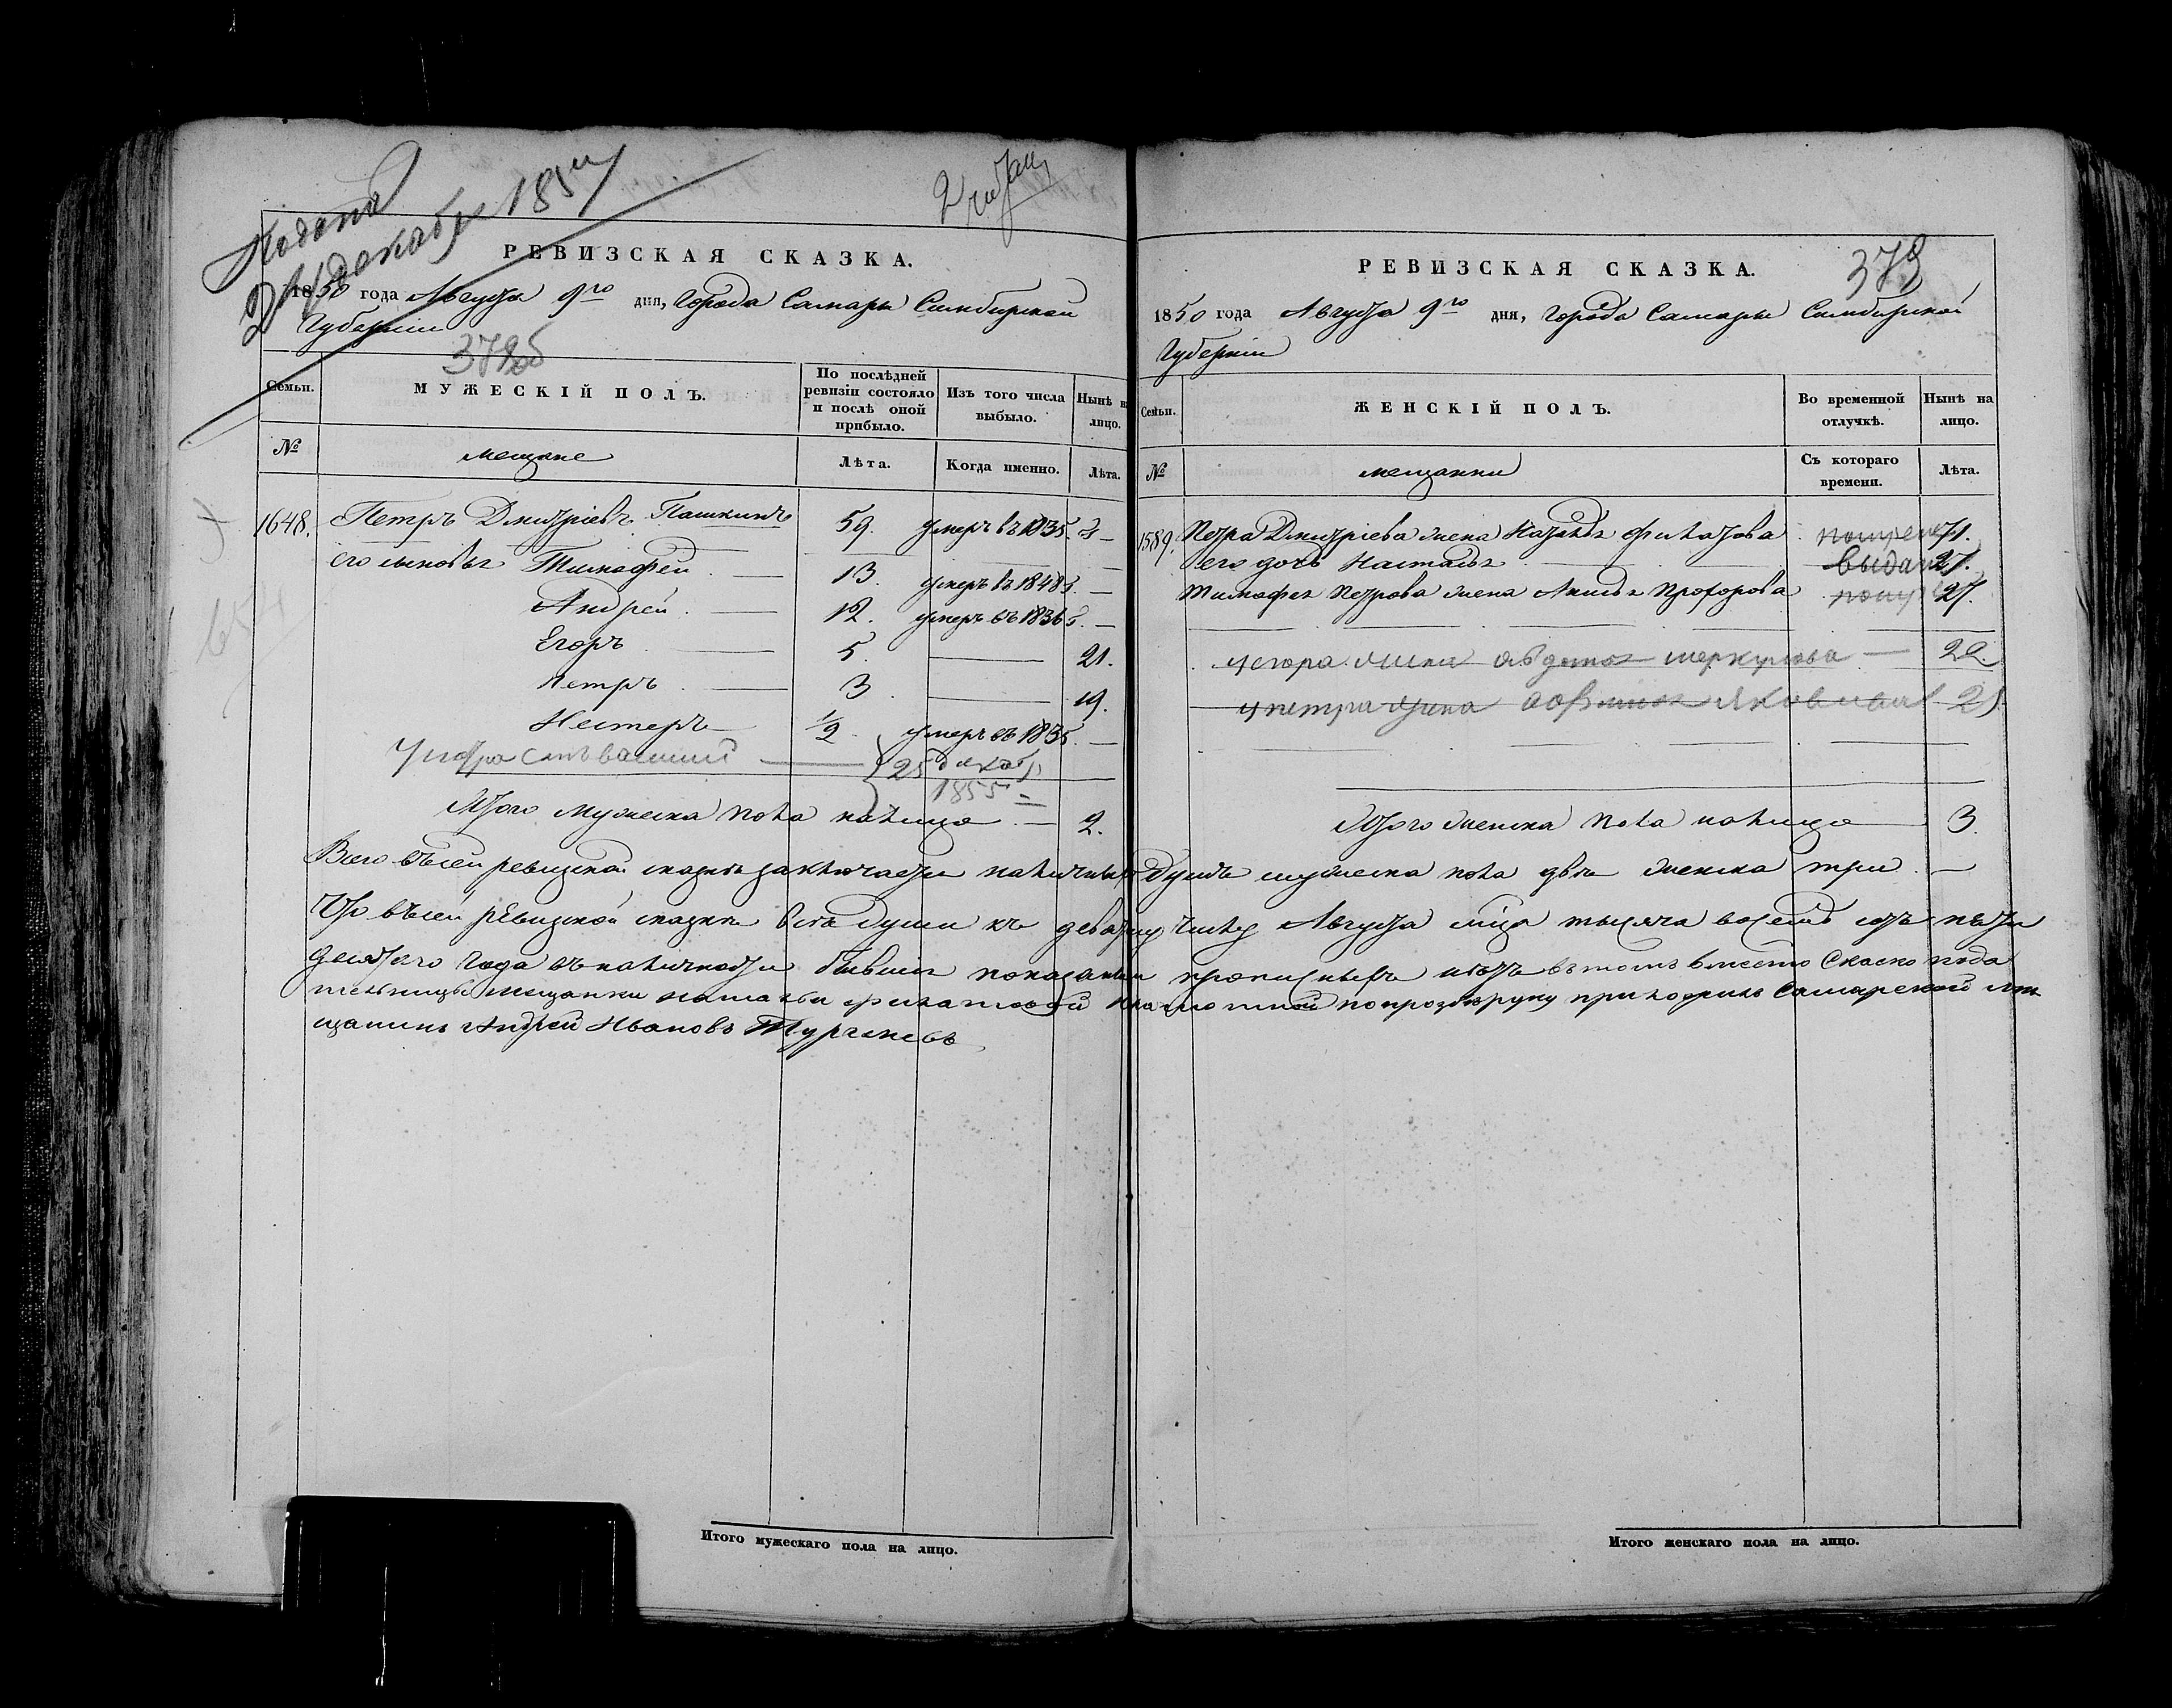 Поданъ
24 декабря 1857
РЕВИЗСКАЯ СКАЗКА.
1850 года Августа 9го дня, города Самары Симбирской
Губерніи
378об
Семьи.
МУЖЕСКІЙ ПОЛЪ.
По послѣдней ревизіи состояло и послѣ оной прибыло.
Изъ того числа выбыло.
Нынѣ на лицо.
№
мещане
Лѣта.
Когда именно.
Лѣта.
1648. Петръ Дмитріевъ Пашкинъ 59. умеръ въ 1835. —
его сыновья Тимафей 13. умеръ въ 1848. —
Андрей 12. умеръ въ 1836 —
Егоръ 5. — 21.
Петръ 3. — 19.
Нестеръ 1/2 умеръ въ 1835. —
25 декаб
1855
Итого мужеска пола налицо — 2.
РЕВИЗСКАЯ СКАЗКА.
379
1850 года Августа 9го дня, города Самары Симбирской
Губерніи
Семьи.
ЖЕНСКІЙ ПОЛЪ.
Во временной отлучкѣ.
Нынѣ на лицо.
№
мещанки
Съ котораго времени.
Лѣта.
1589. Петра Дмитріева жена Наталья Филатова 71.
его дочь Насталья выдана 27.
Тимофея Петрова жена Анисья Прохорова 27.
у егора жина авдотья меркулова — 20.
у петра жина Яковлева
Итого женска пола налицо 3.
Всего въ сей ревизской сказкѣ заключается наличныхъ душъ мужеска пола двѣ женска три. —
Что въ сей ревизской сказкѣ всѣ души къ девятому числу Августа мца тысяча восемь сотъ пяти
десятаго года въ наличности бывшіе показаны и прописныхъ нѣтъ въ томъ вместо скаско пода
тельницы мещанки натальи филатовой не грамотной по прозбѣ руку приложилъ Самарской ме
щанинъ Андрей Ивановъ Тургеневъ
Итого мужескаго пола на лицо.
Итого женскаго пола на лицо.